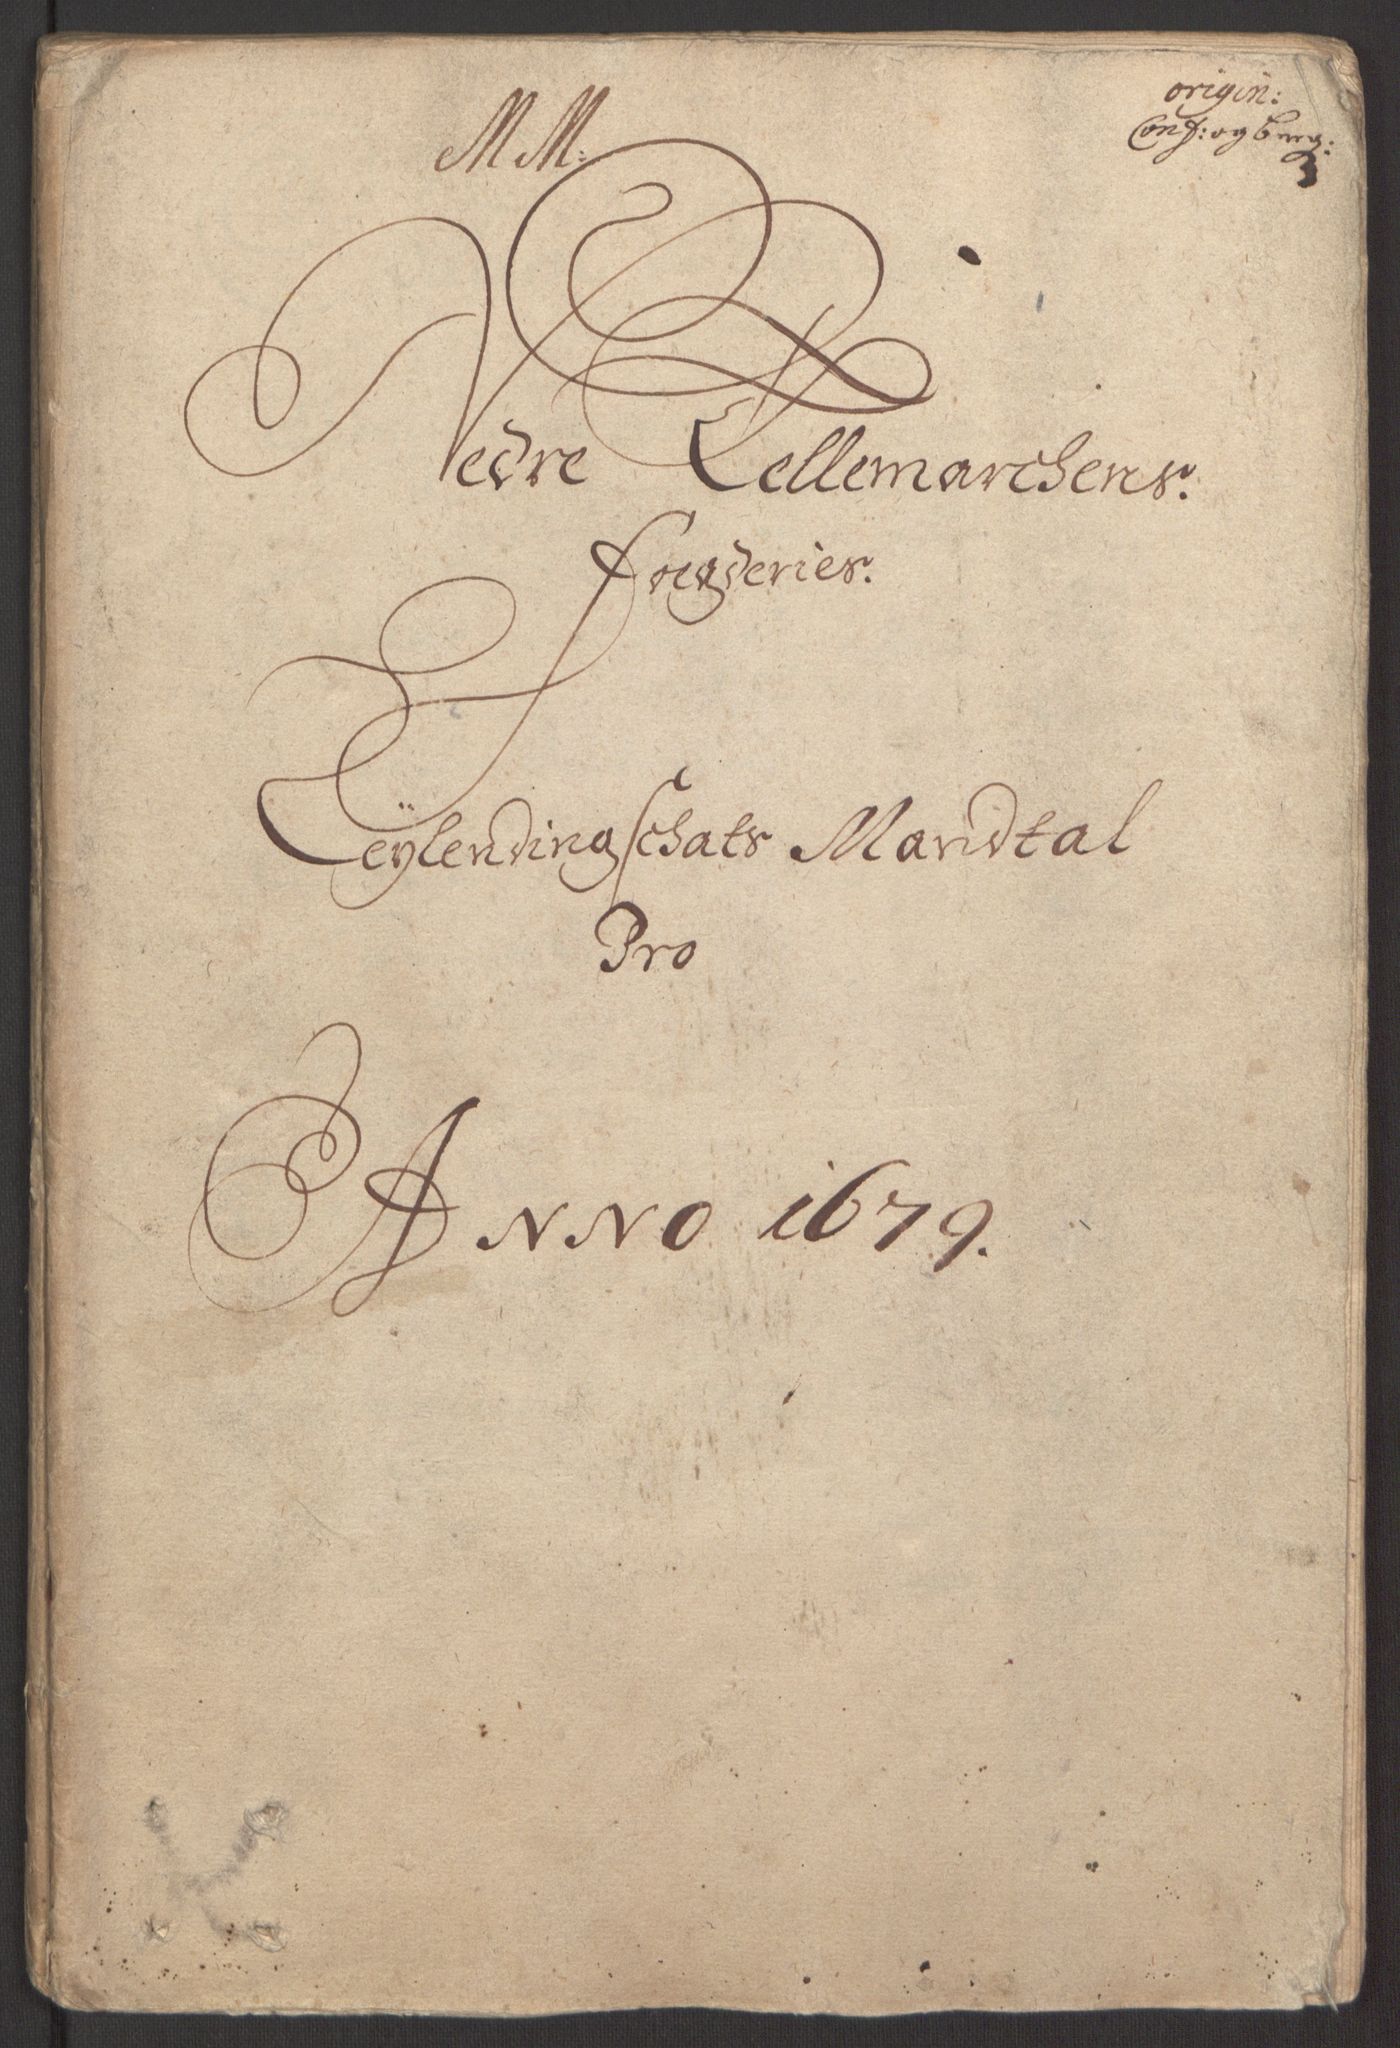 origin:
Conf: og bereg:
MM:
Nedre Tellemarchens.
Fougderies.
Leÿlending schats Mandtal
Pro
ANNO 1679.